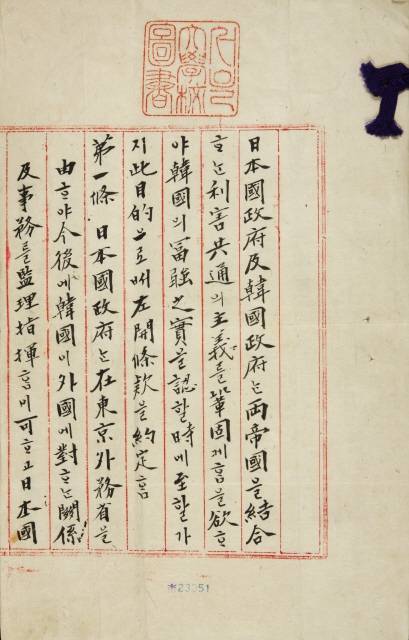 서울
大學校
圖書
日本國政府及韓國政府는兩帝國을結合
ᄒᆞ는利害共通의主義를鞏固케ᄒᆞᆷ을欲ᄒᆞ
야韓國의富强之實을認ᄒᆞᆯ時에至ᄒᆞᆯ가
지此目的으로ᄡᅥ左開條款을約定ᄒᆞᆷ
第一條 日本國政府는在東京外務省을
由ᄒᆞ야今後에韓國이外國에對ᄒᆞ는關係
及事務를監理指揮ᄒᆞᆷ이可ᄒᆞ고日本國
23351